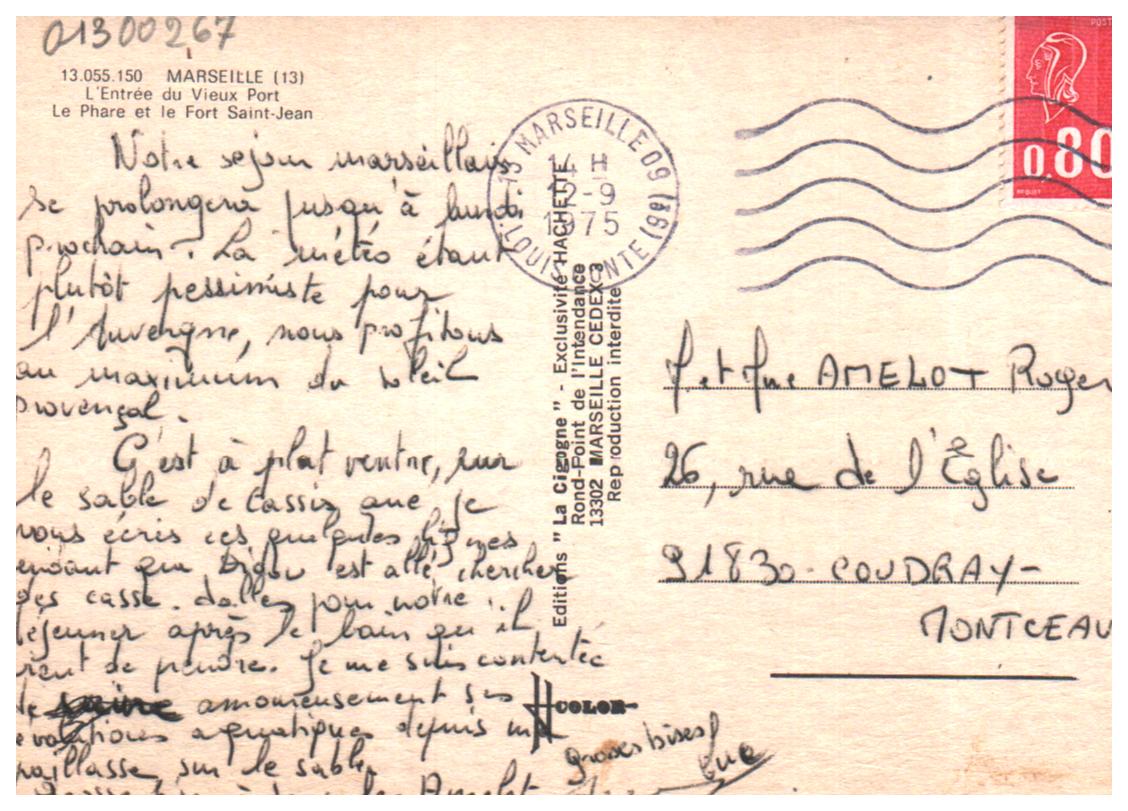 01300267
13.055.150 MARSEILLE (13)
L'Entrée du Vieux Port
Le Phare et le Fort Saint-Jean
Notre sejour marseillais
se prolongera jusqu'à lundi
prochain. La météo étant
plutôt pessimiste pour
l'Auvergne, nous profitons
au maximum du soleil
provençal.
C'est à plat ventre, sur
le sable de Cassis que je
vous écris ces quelques lignes
pendant que est allé chercher
des casse-dalles pour notre
déjeuner après le bain qu'il
vient de prendre. Je me suis contentée
de suivre amoureusement ses
évolutions aquatiques depuis ma
paillasse sur le sable.
Amelot
grosses bises
Luc
13 MARSEILLE 09
14 H
12-9
1975
Editions "La Cigogne" - Exclusivité HACHETTE
Rond-Point de l'Intendance
13302 MARSEILLE CEDEX 3
Reproduction interdite
COLOR
POST
0,80
BEQUET
M et Mme AMELOT Roger
26, rue de l'Église
91830 - COUDRAY-
MONTCEAU